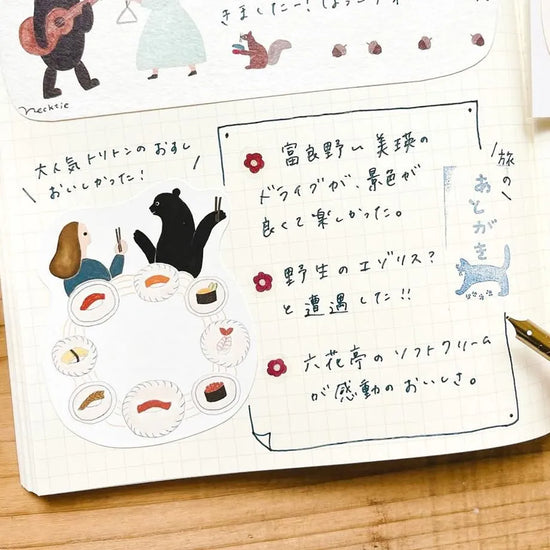 きましたー!
necktie
大人気トリトンのおすし
おいしかった!
富良野や美瑛の
ドライブが、景色が
良くて楽しかった。
野生のエゾリス?
と遭遇した!!
六花亭のソフトクリーム
が感動のおいしさ。
旅の
あとがき